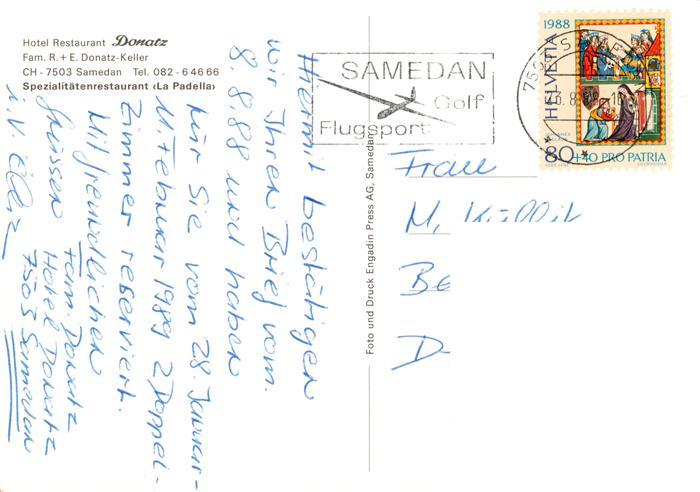 Hotel Restaurant Donatz
Fam. R. + E. Donatz-Keller
CH - 7503 Samedan Tel. 082 - 6 46 66
Spezialitätenrestaurant ‹La Padella›
Hiermit bestätigen
wir Ihren Brief vom
8.8.88 und haben
für Sie vom 28. Januar-
11. Februar 1989 2 Doppel-
zimmer reserviert.
Mit freundlichen
Grüssen Fam. Donatz
Hotel Donatz
7503 Samedan
i.V.
Foto und Druck Engadin Press AG, Samedan
SAMEDAN
Golf
Flugsport
1988
HELVETIA
80+40 PRO PATRIA
Frau
M.
Be
D-